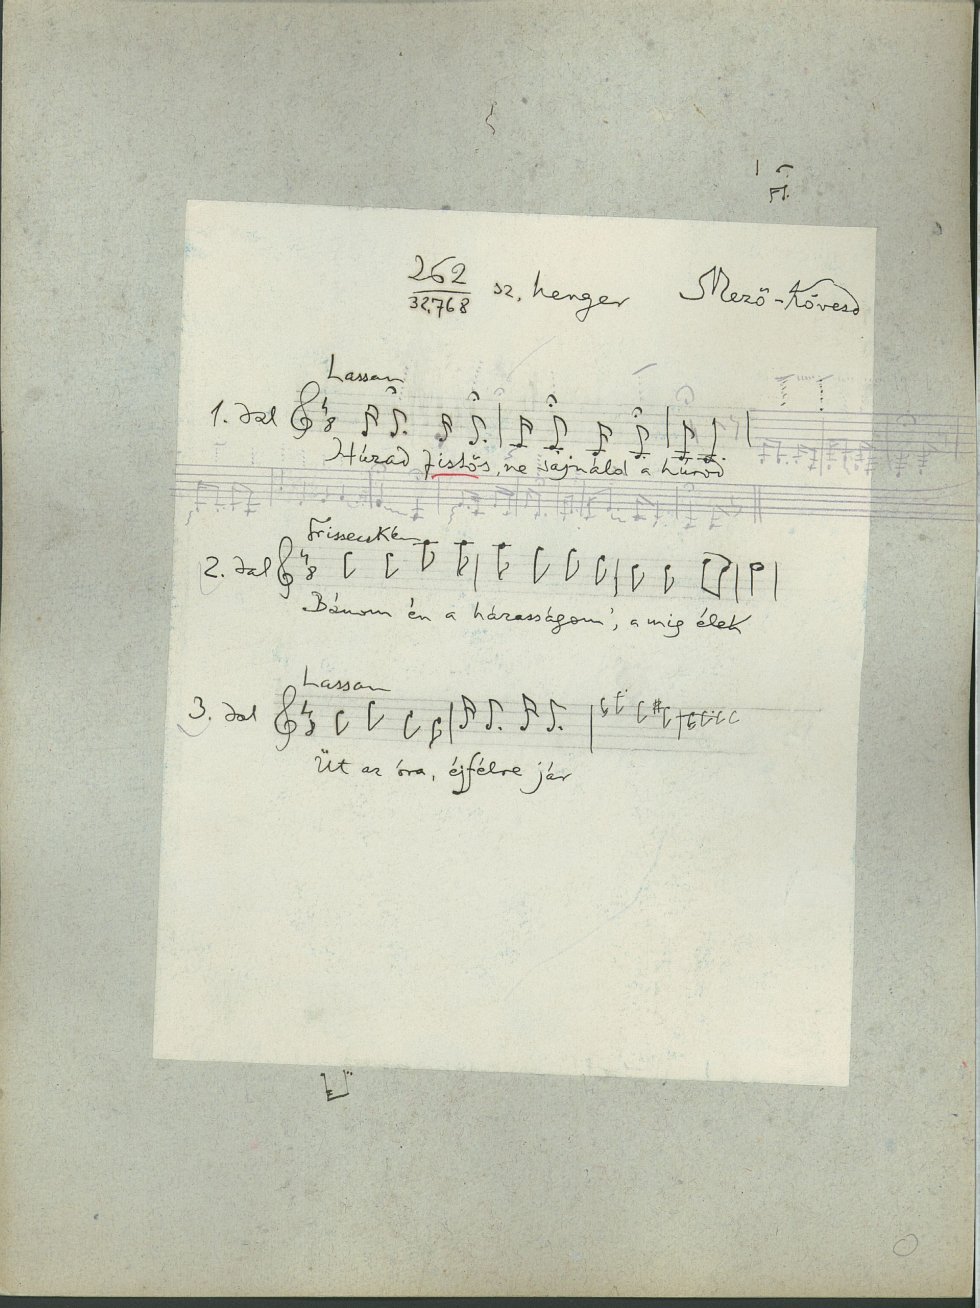 262
32,768
sz, henger Mező-Kövesd
Lassan
1. dal
Húzad füstös, ne sajnáld a húrod
Frissecskén
2. dal
Bánom én a házasságom', a mig élek
Lassan
3. dal
Üt az óra, éjfélre jár